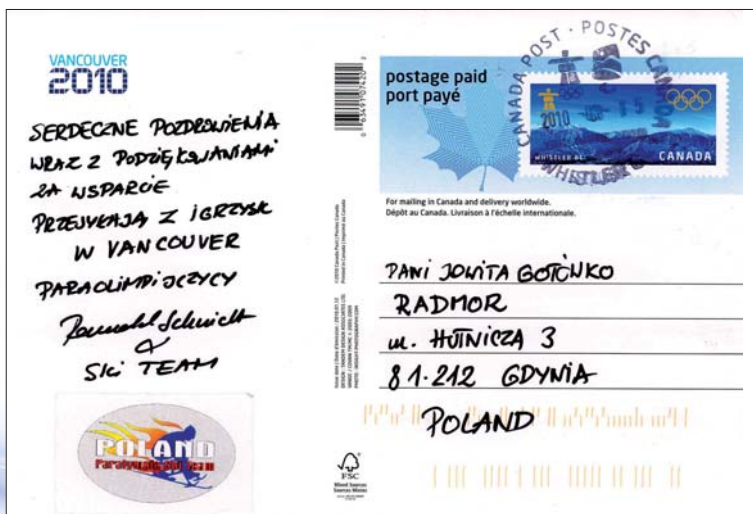 VANCOUVER
2010
SERDECZNE POZDROWIENIA
WRAZ Z PODZIĘKOWANIAMI
ZA WSPARCIE
PRZESYŁAJĄ Z IGRZYSK
W VANCOUVER
PARAOLIMPIJCZYCY
&
SKi TEAM
POLAND
Paralympic Ski Team
postage paid
port payé
CANADA POST · POSTES CANADA
2010
WHISTLER B.C.
CANADA
For mailing in Canada and delivery worldwide.
Dépôt au Canada. Livraison à l'échelle internationale.
PANI JOWITA GOTÓWKO
RADMOR
ul. HUTNICZA 3
81-212 GDYNIA
POLAND
FSC
Mixed Sources
Sources Mixtes